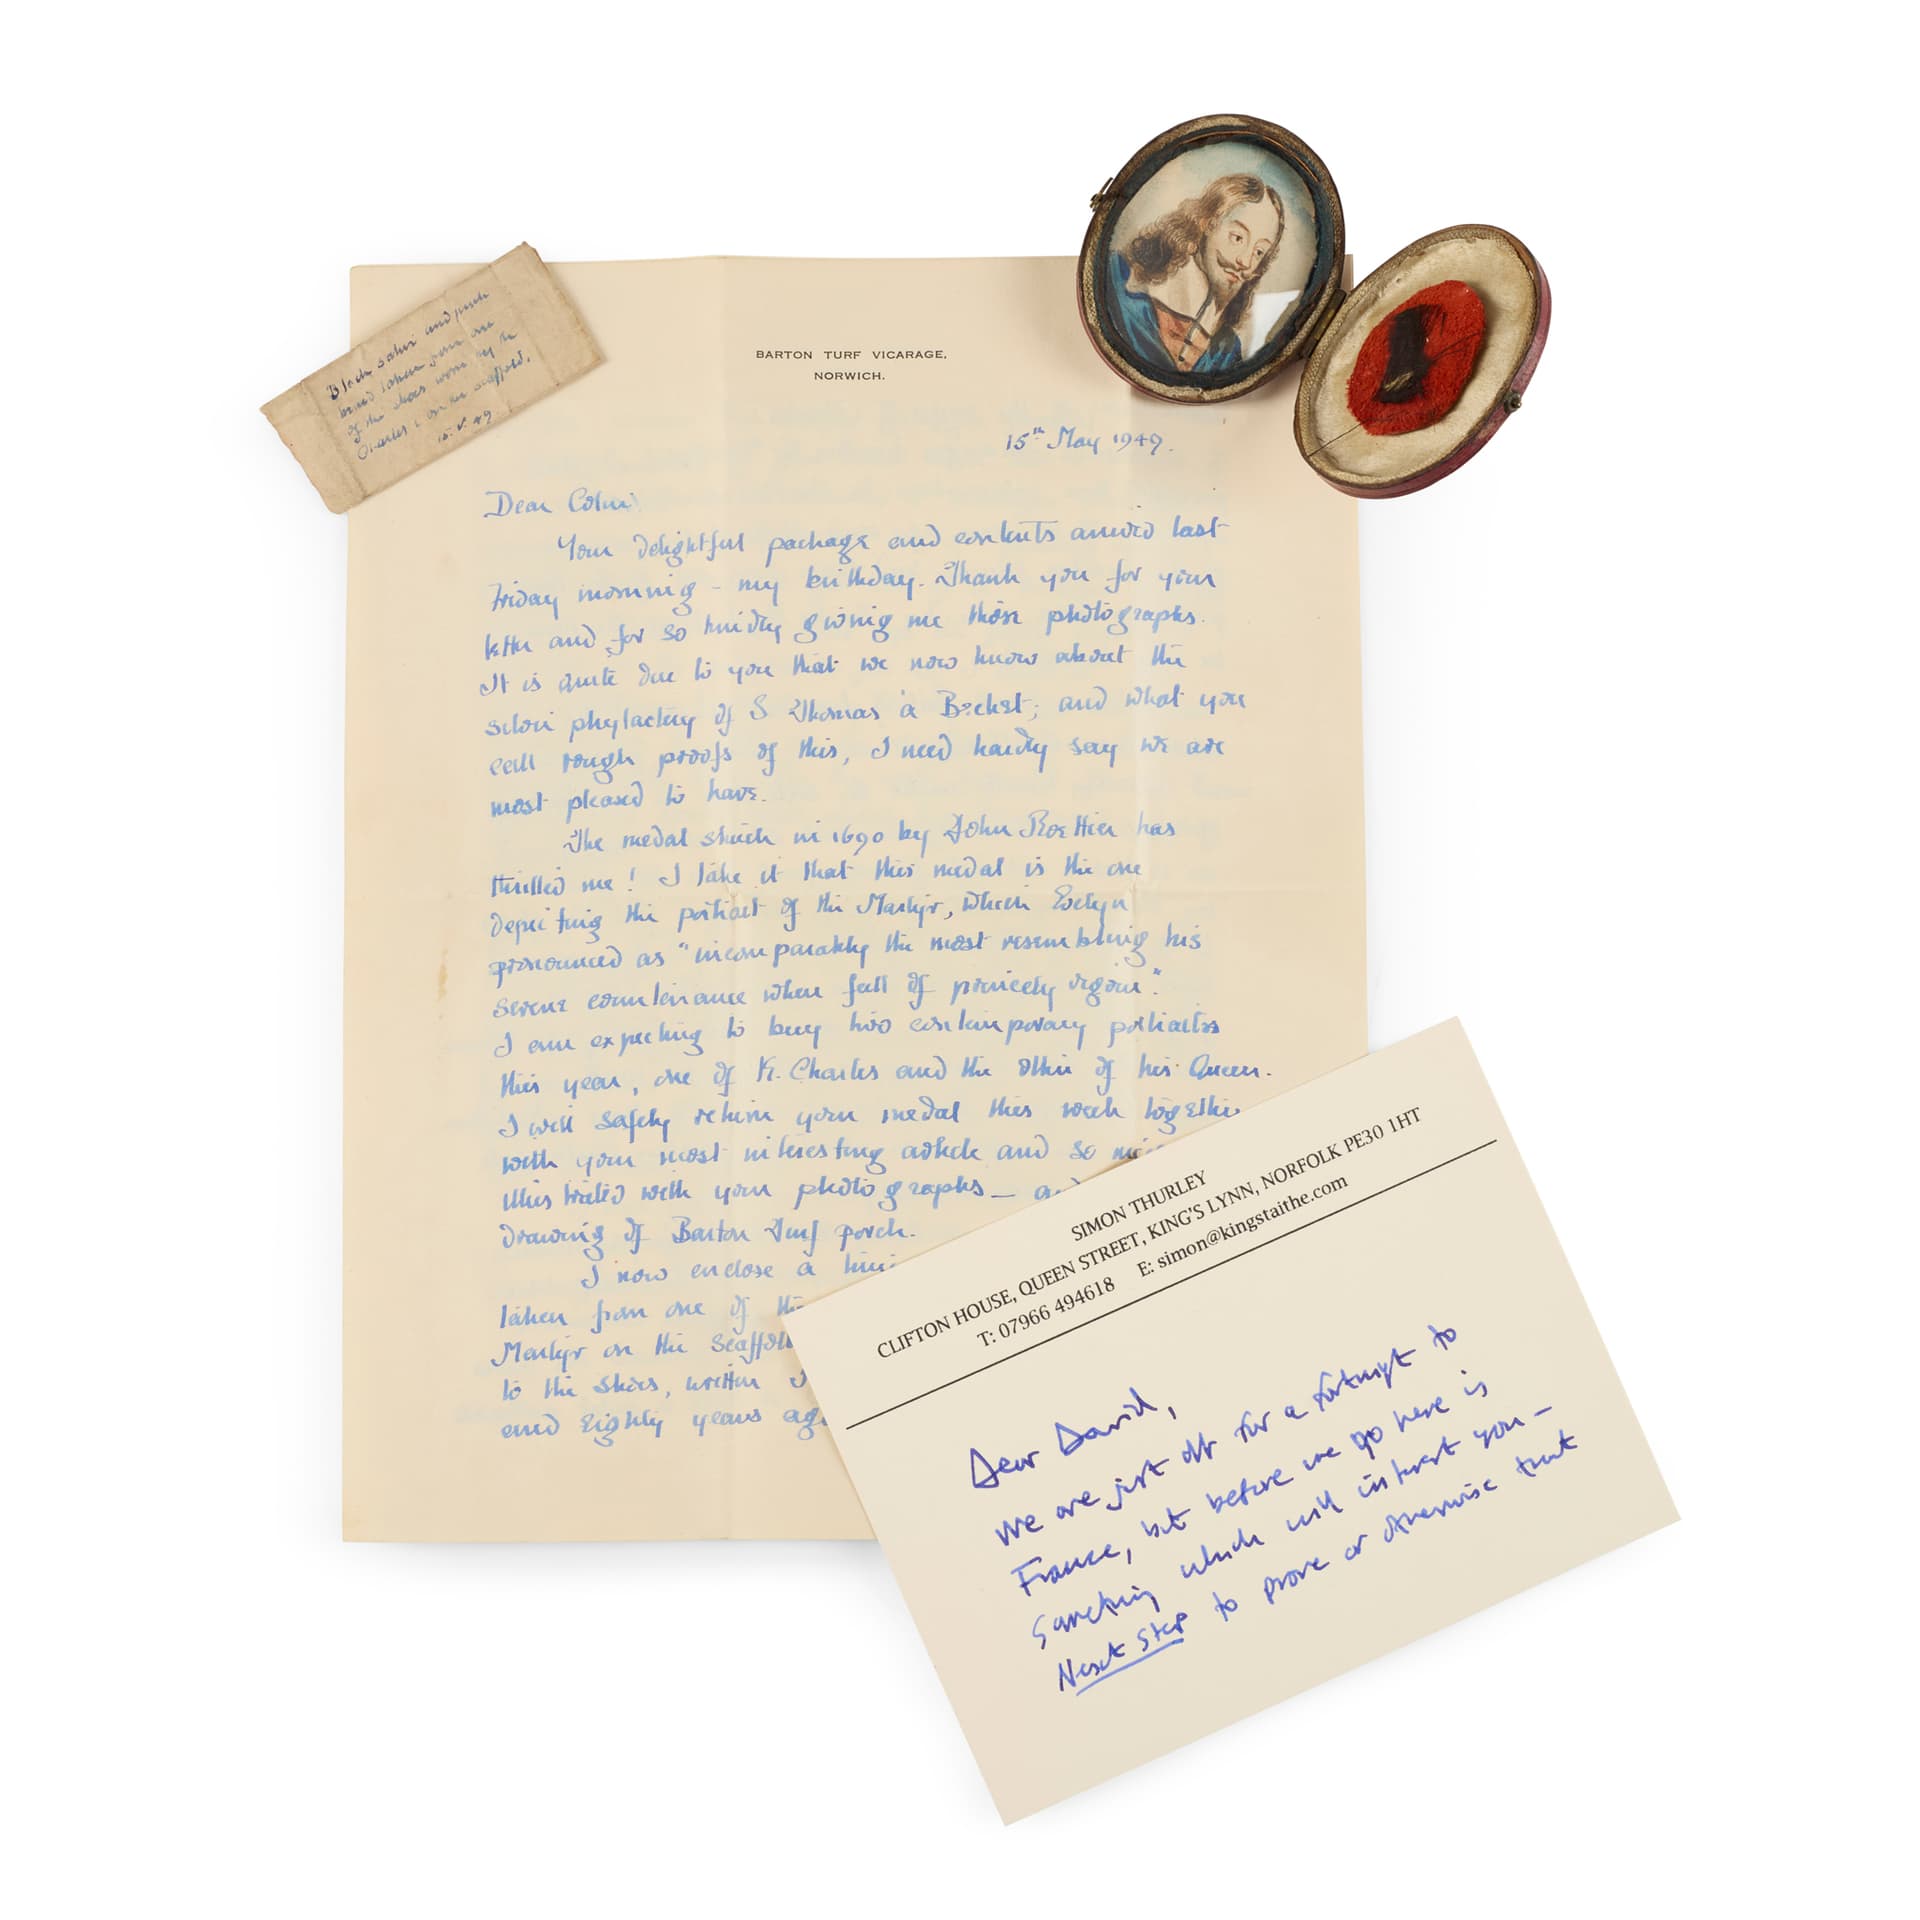 Black satin and pink
braid taken from one
of the shoes worn by K.
Charles I on the scaffold.
15. V. 49
BARTON TURF VICARAGE,
NORWICH.
15th May 1949.
Dear Colin
Your delightful package and contents arrived last
Friday morning - my birthday. Thank you for your
letter and for so kindly giving me those photographs.
It is quite due to you that we now know about the
silver phylactery of S Thomas à Becket; and what you
call rough proofs of this, I need hardly say we are
most pleased to have.
The medal struck in 1690 by John Roettier has
thrilled me! I take it that this medal is the one
depicting the portrait of the Martyr, which Evelyn
pronounced as "incomparably the most resembling his
serene countenance when full of princely vigour".
I am expecting to buy two contemporary portraits
this year, one of K. Charles and the other of his Queen.
I will safely return your medal this week together
with your most interesting article and so
illustrated with your photographs — and
drawing of Barton Turf porch.
I now enclose a
taken from one of the
Martyr on the Scaffold
to the shoes, written
and eighty years ago
SIMON THURLEY
CLIFTON HOUSE, QUEEN STREET, KING'S LYNN, NORFOLK PE30 1HT
T: 07966 494618 E: simon@kingstaithe.com
Dear David,
We are just off for a fortnight to
France, but before we go here is
Something which will interest you –
Next Step to prove or otherwise that